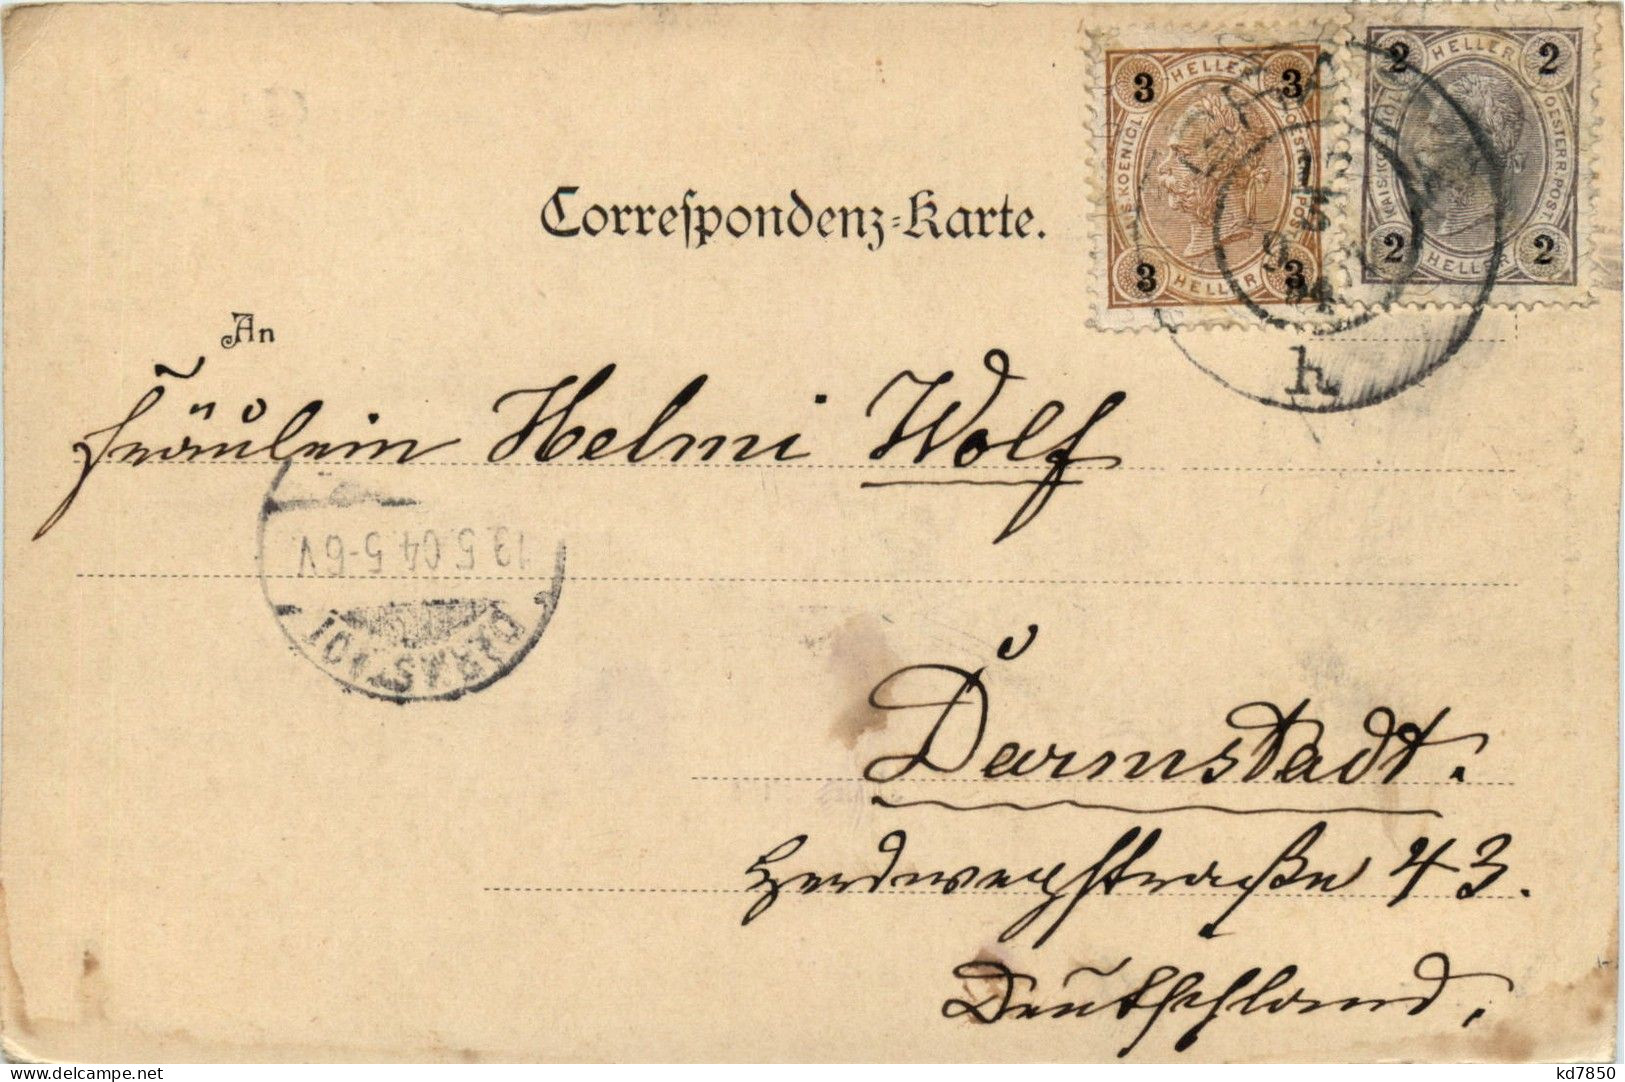 3 HELLER 3
KAIS. KOENIGL.
OESTERR. POST.
3 HELLER 3
2 HELLER 2
KAIS. KOENIGL.
OESTERR. POST.
2 HELLER 2
Correspondenz-Karte.
An
h
Fräulein Helmi Wolf
13.5.04.5-6V
Darmstadt.
Herdwegstraße 43.
Deutschland.
kd7850